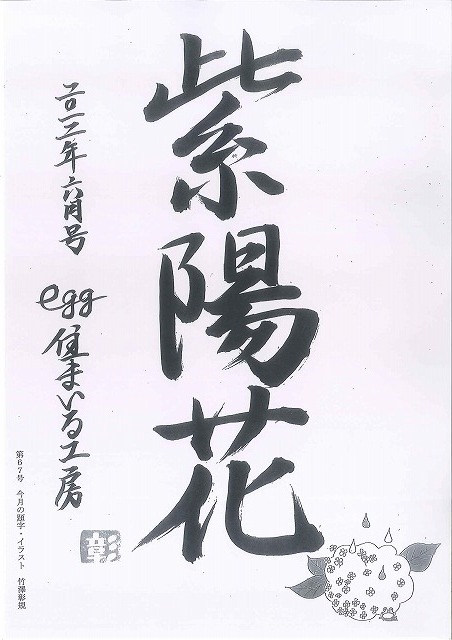 紫陽花
二〇一二年六月号
egg 住まいる工房
彰
第67号 今月の題字・イラスト 竹澤彰規